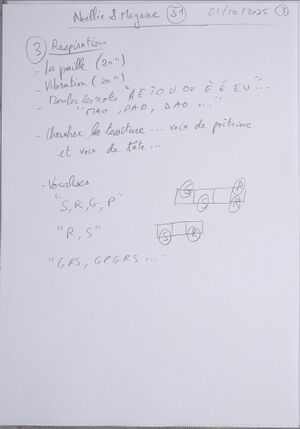 Noellie S Magane S1 01/10/2025 3
3 Respiration
- La paille (20")
- Vibration (20")
- Monter les notes "A E I O U OU È É EU"...
"MAO, PAO, DAO..."
- Chercher la tessiture... voix de poitrine
et voix de tête...
- Vocalises
"S, R, G, P" S G P R
"R, S" S R
"GPS, GPGRS..."